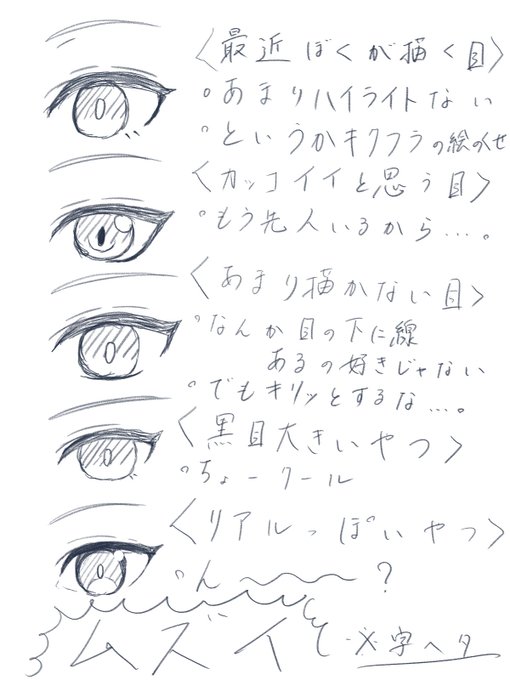 〈最近ぼくが描く目〉
°あまりハイライトない
°というかキクフラの絵のくせ
〈カッコイイと思う目〉
°もう先人いるから…。
〈あまり描かない目〉
°なんか目の下に線
あるの好きじゃない
°でもキリッとするな…。
〈黒目大きいやつ〉
°ちょークール
〈リアルっぽいやつ〉
°ん〜〜〜?
ムズイ
※字ヘタ